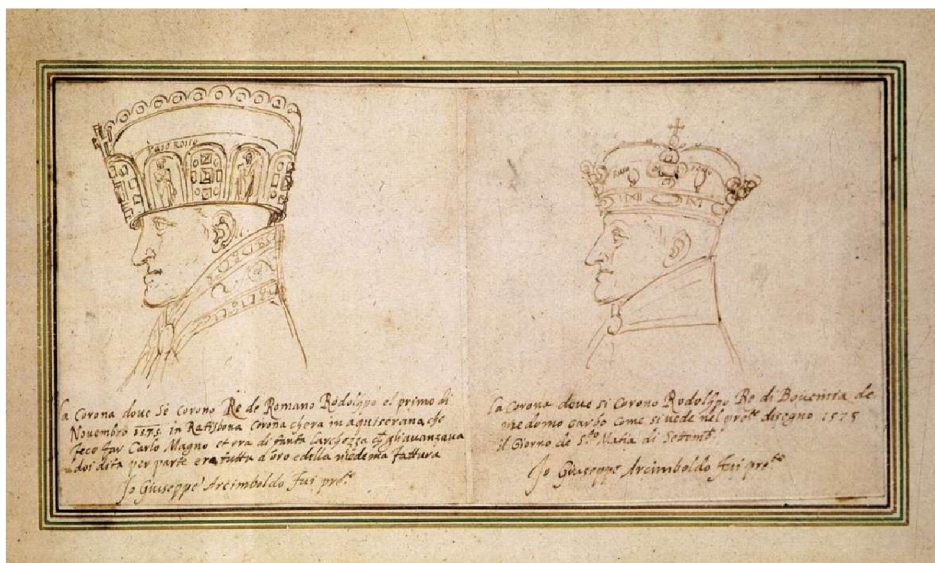 raso rosso
La Corona dove Se Corono Re de Romano Rodolffo el primo di
Novembro 1175. in Ratisbona Corona ch era in aquiserana, che
fece far Carlo Magno et era di tanta larghezza gli avanzava
doi dita per parte era tutta d'oro e della medema fattura
Io Giuseppe Arcimboldo fui pre.te
raso
La Corona dove si Corono Rodolffo Re di Bouemia de
medemo garbo Come si vede nel pre.te disegno 1575
il Giorno de S.ta Maria di Setemb.
Io Giuseppe Arcimboldo fui pre.te